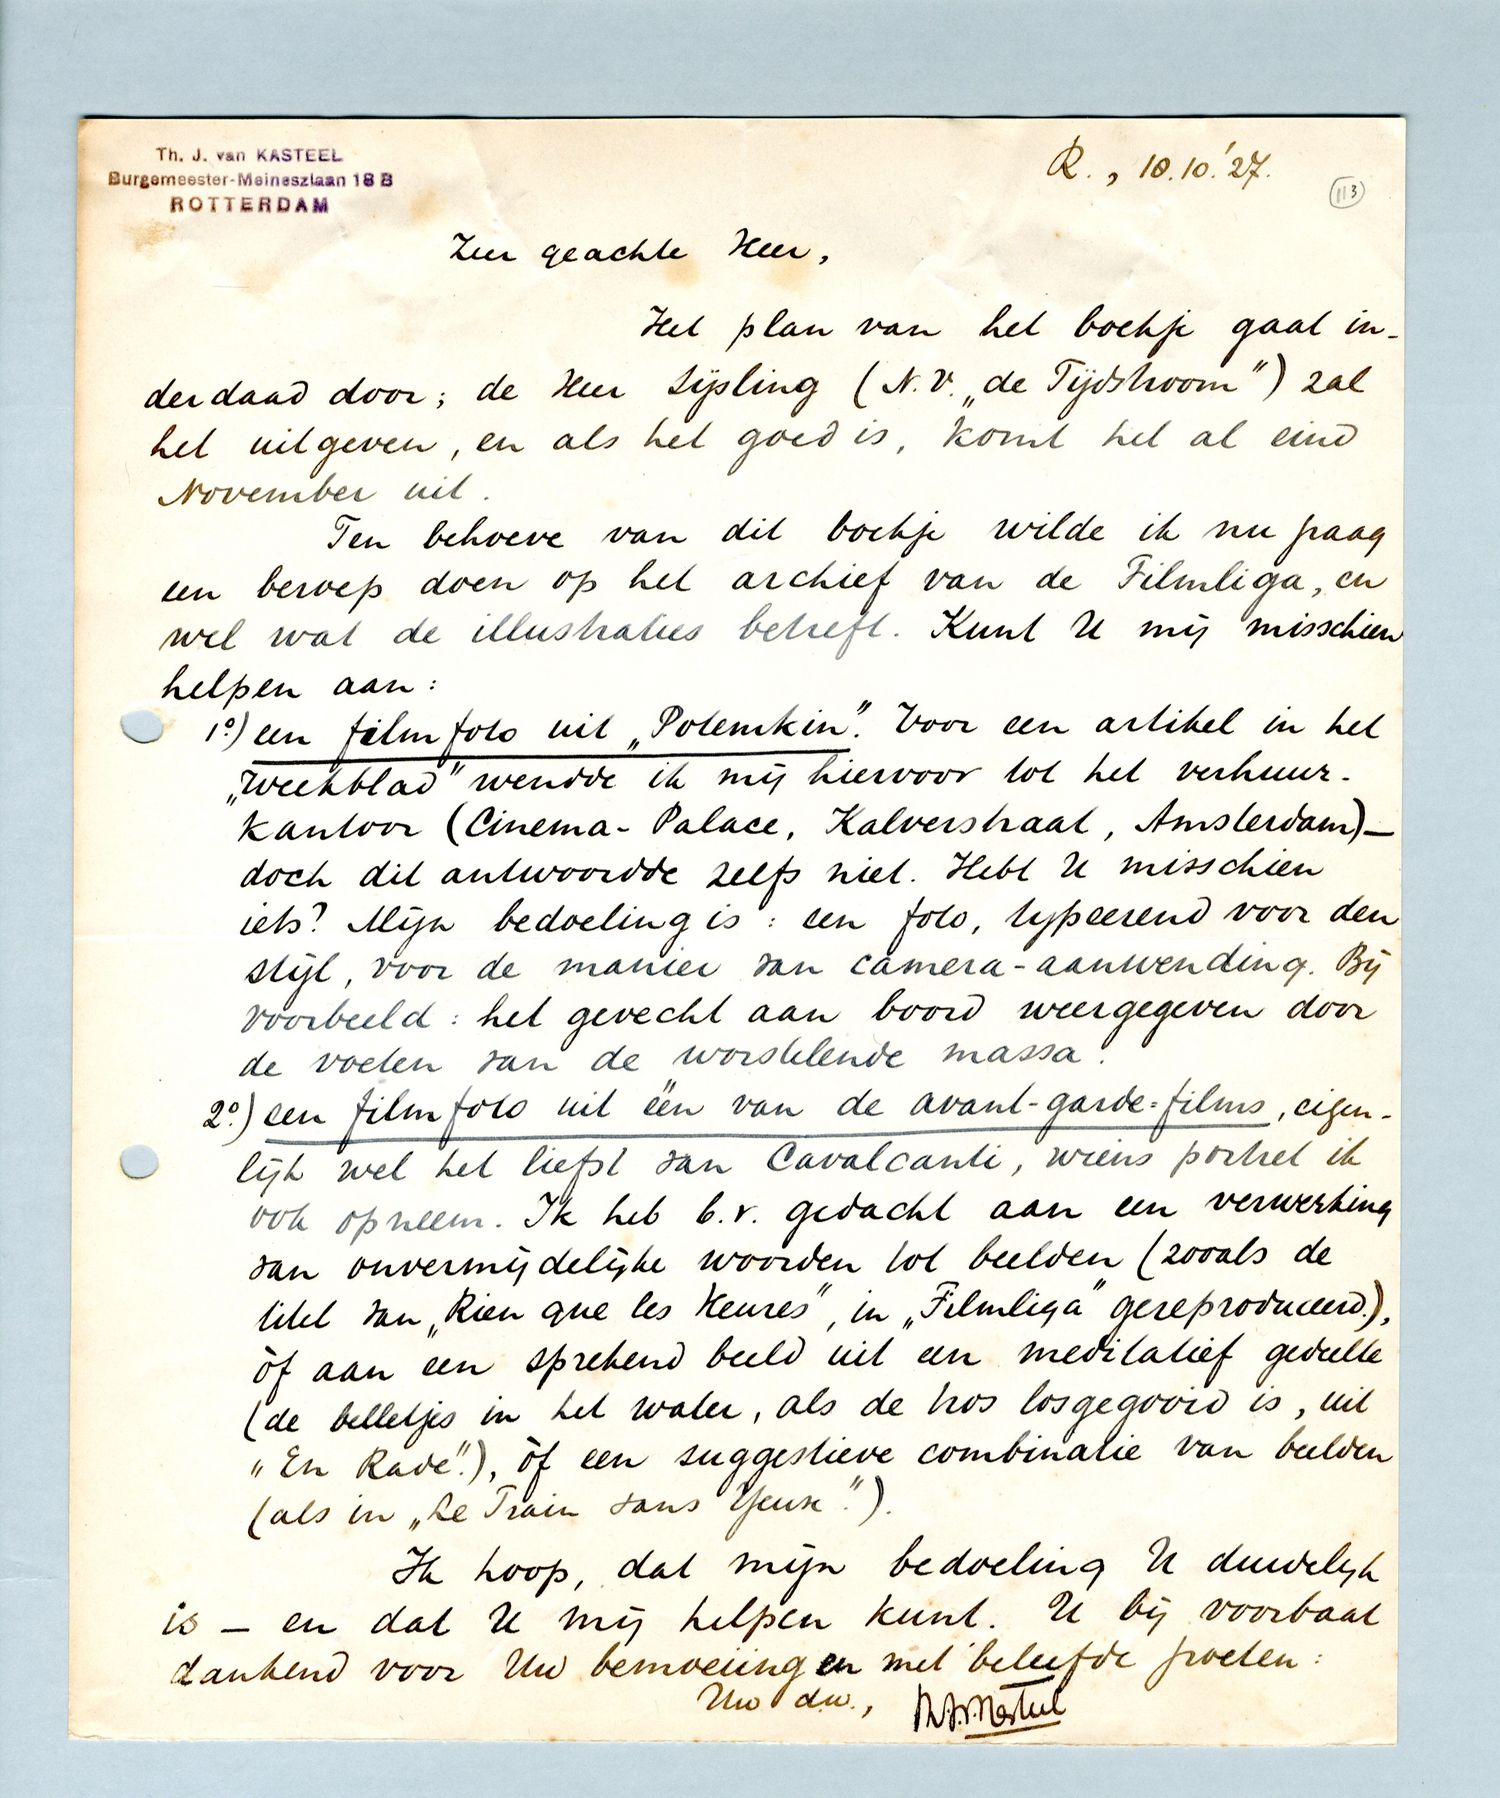 Th. J. van KASTEEL
Burgemeester-Meineszlaan 18 B
ROTTERDAM
R., 10.10.'27.
113
Zeer geachte Heer,
Het plan van het boekje gaat in-
derdaad door; de Heer Sijpling (N.V. „de Tijdstroom") zal
het uitgeven, en als het goed is, komt het al eind
November uit.
Ten behoeve van dit boekje wilde ik nu graag
een beroep doen op het archief van de Filmliga, en
wel wat de illustraties betreft. Kunt U mij misschien
helpen aan:
1º.) een filmfoto uit „Potemkin". Voor een artikel in het
„Weekblad" wendde ik mij hiervoor tot het verhuur-
kantoor (Cinema-Palace, Kalverstraat, Amsterdam) —
doch dit antwoordde zelfs niet. Hebt U misschien
iets? Mijn bedoeling is: een foto, typeerend voor den
stijl, voor de manier van camera-aanwending. Bij
voorbeeld: het gevecht aan boord weergegeven door
de voeten van de worstelende massa.
2º.) een filmfoto uit één van de avant-garde-films, eigen-
lijk wel het liefst van Cavalcanti, wiens portret ik
ook opneem. Ik heb b.v. gedacht aan een verwerking
van onvermijdelijke woorden tot beelden (zooals de
titel van „Rien que les Heures", in „Filmliga" gereproduceerd.),
òf aan een sprekend beeld uit een meditatief gedeelte
(de belletjes in het water, als de tros losgegooid is, uit
„En Rade".), òf een suggestieve combinatie van beelden
(als in „Le Train sans Yeux".).
Ik hoop, dat mijn bedoeling U duidelijk
is — en dat U mij helpen kunt. U bij voorbaat
dankend voor Uw bemoeiingen met beleefde groeten:
Uw dw., Th. J. v. Kasteel